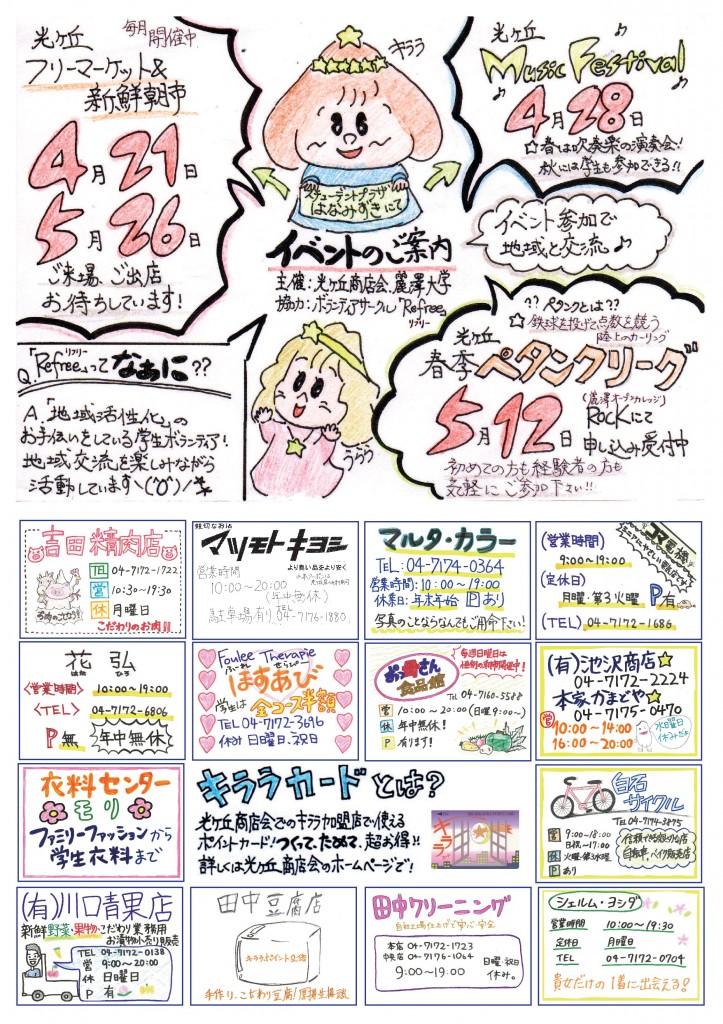 光ヶ丘
毎月開催中
フリーマーケット&
新鮮朝市
4月21日
5月26日
ご来場、ご出店
お待ちしています!
キララ
スチューデントプラザ
はなみずきにて
イベントのご案内
主催:光ヶ丘商店会、麗澤大学
協力:ボランティアサークル「Refree」
リフリー
光ヶ丘
Music Festival
4月28日
☆春は吹奏楽の演奏会!
秋には学生も参加できる!!
イベント参加で
地域と交流♪
??ペタンクとは??
☆鉄球を投げて点数を競う
陸上のカーリング
光ヶ丘
春季ペタンクリーグ
(麗澤オープンカレッジ)
5月12日
RocKにて
申し込み受付中
初めての方も経験者の方も
気軽にご参加下さい!!
Q.「Refree」ってなぁに??
リフリー
A.「地域活性化」の
お手伝いをしている学生ボランティア!
地域交流を楽しみながら
活動しています
うらら
吉田精肉店
TEL 04-7172-1722
営 10:30~19:30
休 月曜日
こだわりのお肉!!
マツモトキヨシ
より良い品をより安く
営業時間
10:00~20:00
(年中無休)
駐車場有り TEL 04-7176-1880
マルタ・カラー
TEL:04-7174-0364
営業時間:10:00~19:00
休業日:年末年始 Pあり
写真のことならなんでもご用命下さい!
JR電機
(営業時間)
9:00~19:00
(定休日)
月曜・第3火曜 P有
(TEL) 04-7172-1686
花弘
はな ひろ
<営業時間> 10:00~19:00
<TEL> 04-7172-6806
P無 年中無休
Foulee Therapie
ふーれ せらぴー
はすあび
学生は全コース半額
TEL 04-7172-3696
休み 日曜日、祝日
毎週日曜日は
恒例の朝市開催中!
お母さん
食品館
TEL 04-7160-5588
営 10:00~20:00(日曜9:00~)
休 年中無休!
P 有ります!
(有)池沢商店☆
04-7172-2224
本家かまどや☆
04-7175-0470
営 10:00~14:00
16:00~20:00
水曜日
休みだよ
衣料センター
モリ
ファミリーファッションから
学生衣料まで
キララカードとは?
光ヶ丘商店会でのキララ加盟店で使える
ポイントカード!つくって、ためて、超お得!!
詳しくは光ヶ丘商店会のホームページで!
キララ
白石
サイクル
TEL 04-7174-3875
営 9:00~18:00
日祝~17:00
休 火曜・第3水曜
P あり
自転車、バイク販売店
(有)川口青果店
新鮮野菜・果物・こだわり業務用
お漬物小売り販売
TEL 04-7172-0138
営 9:00~20:00
休 日曜日
P 有
田中豆腐店
キララポイント2倍
手作り、こだわり豆腐!
田中クリーニング
自社工場仕上げで安心・安全
本店 04-7172-1723
中央店 04-7176-1064
9:00~19:00
日曜・祝日
休み。
シェルム・ヨシダ
営業時間 10:00~19:30
定休日 月曜日
TEL 04-7172-0704
貴女だけの1着に出会える!